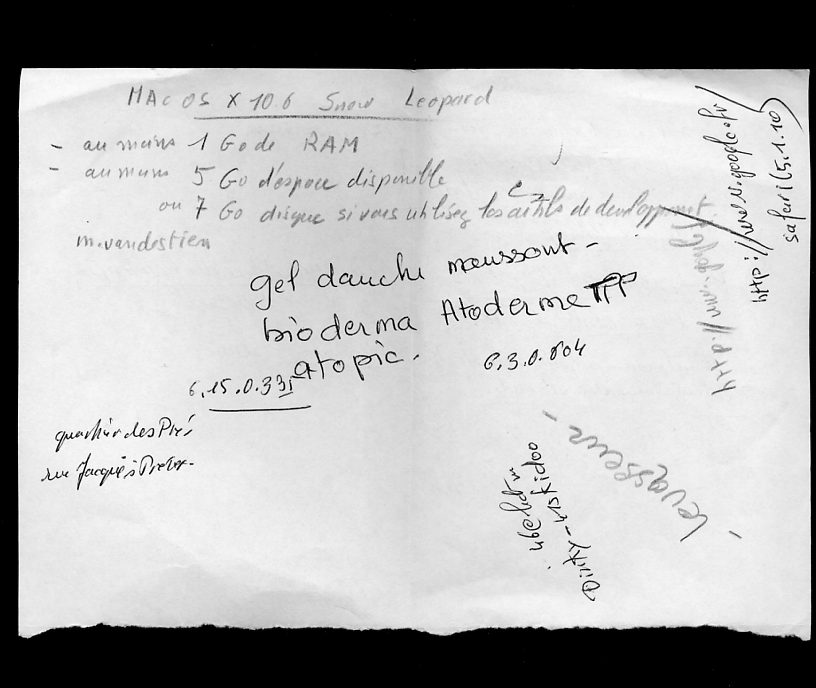 MAC OS X 10.6 Snow Leopard
- au moins 1 Go de RAM
- au moins 5 Go d'espace disponible
ou 7 Go disque si vous utilisez les outils de development.
m.vandestien
gel douche moussant -
bioderma Atoderme PP
atopic.
6.3.0.804
6.15.0.335
quartier des Prés
rue Jacques
http://www.google.fr/
safari (5.1.10)
http://www.
- levasseur -
Dinky - kidoo